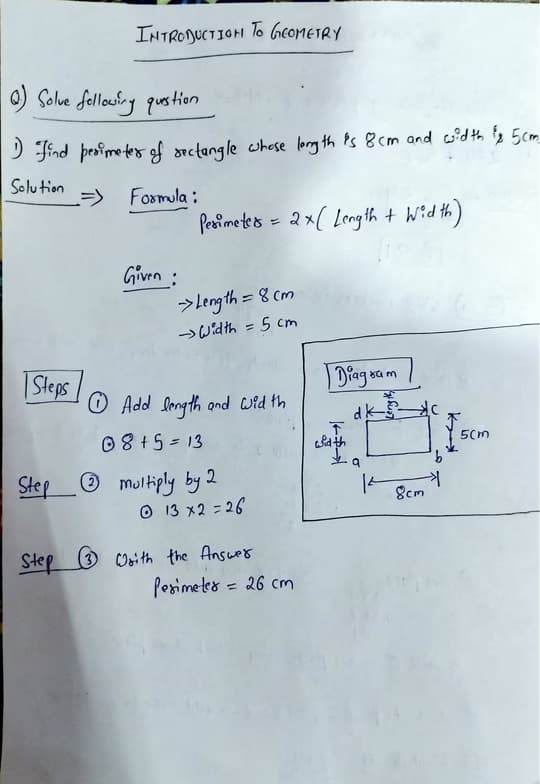 INTRODUCTION TO GEOMETRY
Q) Solve following qustion
1) Find perimeter of rectangle whose length is 8cm and width is 5cm
Solution => Formula :
Perimeter = 2 x ( Length + Width )
Given :
→ Length = 8 cm
→ Width = 5 cm
Steps
① Add length and width
⊙ 8 + 5 = 13
Step ② multiply by 2
⊙ 13 x 2 = 26
Step ③ Writh the Answer
Perimeter = 26 cm
Diagram
d c
width 5cm
a b
8cm